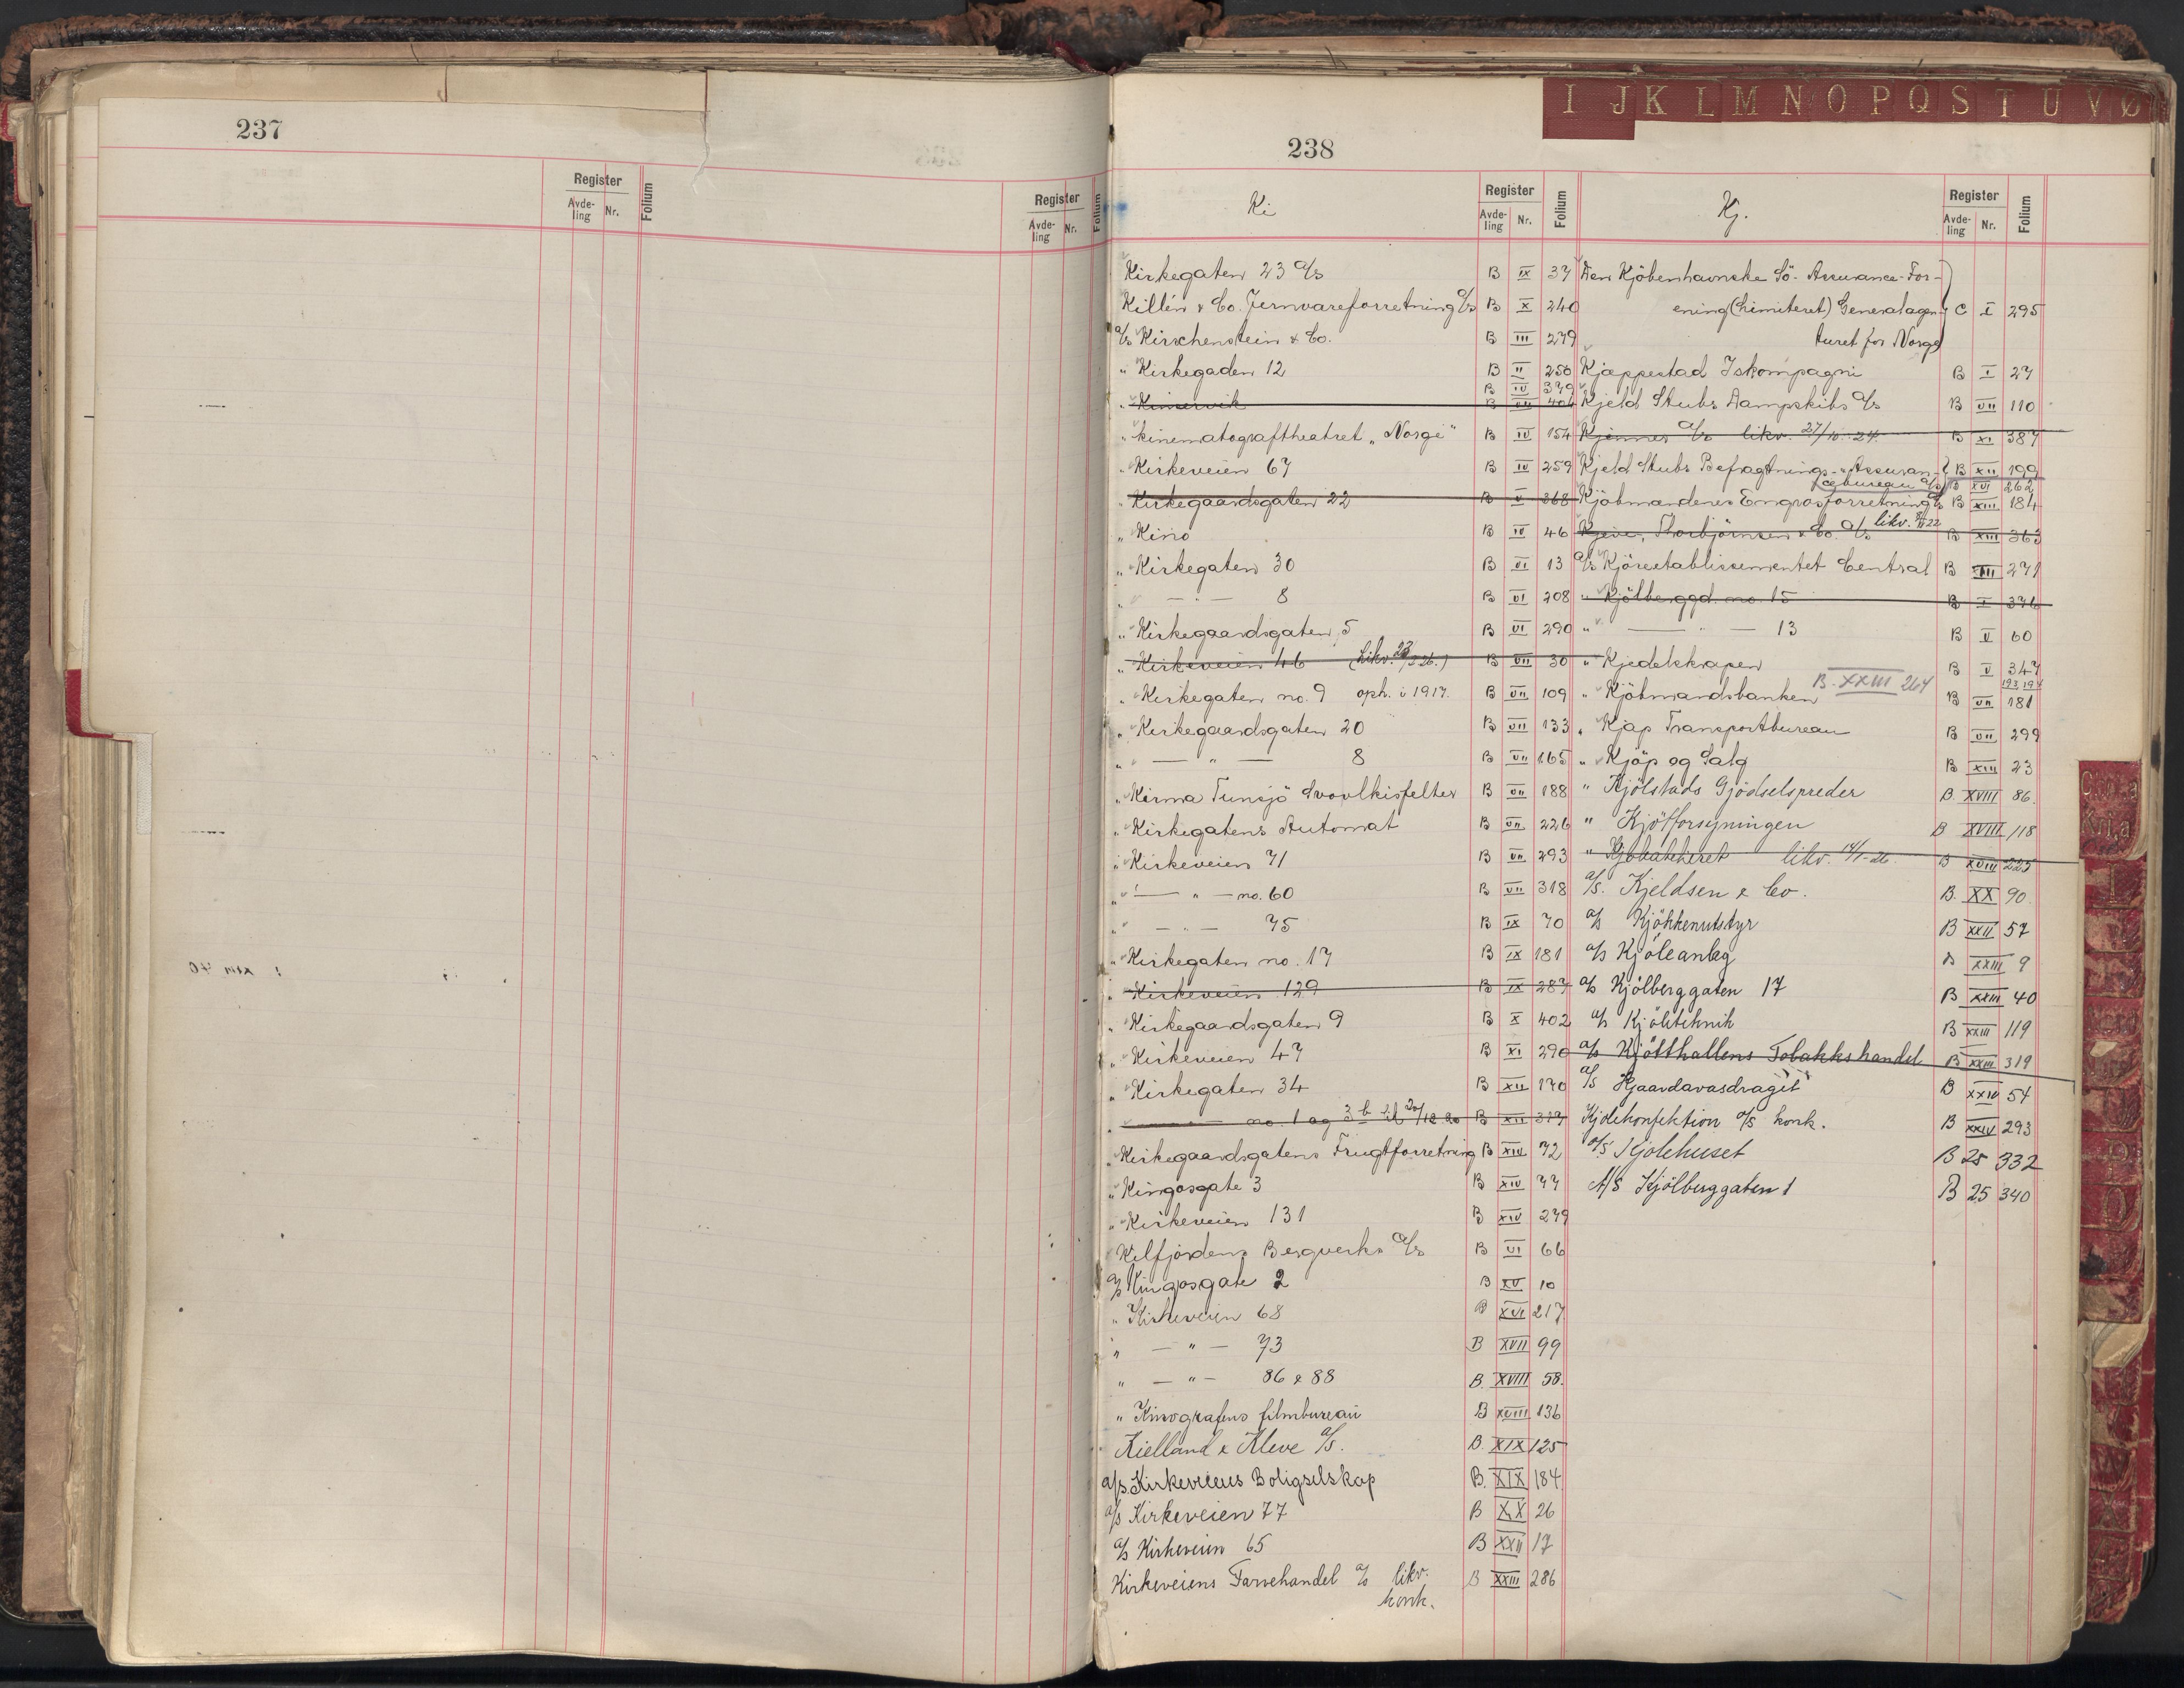 237
Register
Avde-
ling
Nr.
Folium
Register
Avde-
ling
Nr.
Folium
I J K L M N O P Q S T U V Ø
238
Ki
Register
Avde-
ling
Nr.
Folium
Kirkegaten 23 A/s B IX 37
Killén & Co. Jernvareforretning A/s B X 240
A/s Kirschenstein & Co. B III 279
" Kirkegaden 12 B II 250
B IV 379
" Kinservik B VII 404
" Kinematograftheatret „Norge" B IV 154
" Kirkeveien 67 B IV 259
" Kirkegaardsgaten 22 B V 368
" Kino B IV 46
" Kirkegaten 30 B VI 13
" — " — 8 B VI 208
" Kirkegaardsgaten 5 B VI 290
" Kirkeveien 46 (Likv. 23/3 26.) B VII 30
" Kirkegaten no. 9 oph. i 1917. B VII 109
" Kirkegaardsgaten 20 B VII 133
" — " — 8 B VII 165
" Kirma Tunsjö svovlkisfelter B VII 188
" Kirkegatens Automat B VII 226
" Kirkeveien 71 B VII 293
" — " — no. 60 B VII 318
" — " — 75 B IX 70
" Kirkegaten no. 17 B IX 181
" Kirkeveien 129 B IX 287
" Kirkegaardsgaten 9 B X 402
" Kirkeveien 47 B XI 290
" Kirkegaten 34 B XII 170
" — no. 1 og 3 20/12 20 B XII 319
" Kirkegaardsgatens Frugtforretning B XIV 72
" Kingosgate 3 B XIV 77
" Kirkeveien 131 B XIV 279
Kilfjordens Bergverks A/s B VI 66
A/s Kingosgate 2 B XV 10
" Kirkeveien 68 B XVI 217
" — " — 73 B XVII 99
" — " — 86 & 88 B. XVIII 58.
" Kinografens filmbureau B XVIII 136
Kielland & Kleve A/S. B. XIX 125
A/S. Kirkeveiens Boligselskap B. XIX 184
A/S Kirkeveien 77 B XX 26
A/S Kirkeveien 65 B XXII 17
Kirkeveiens Farvehandel A/S likv. B XXIII 286
konk.
Kj.
Register
Avde-
ling
Nr.
Folium
Den Kjöbenhavnske Sö-Assurance-For-
ening (Limiteret) Generalagen- C I 295
turet for Norge
Kjæppestad Iskompagni B I 27
Kjeld Stubs Dampskibs A/s B VII 110
Kjennes A/s likv. 27/10 24. B XI 387
Kjeld Stubs Befragtnings- & Assuran- B XII 199
cebureau A/s B XVI 262
Kjöbmandenes Engrosforretning A/s B XIII 184
Kjeve, Thorbjörnsen & Co. A/s likv. 22 B XIII 363
A/s Kjöreetablissementet Central B XIII 271
" Kjölberggd. no. 15 B I 376
" — " — 13 B II 60
" Kjedelskrapen B V 347
B. XXIII 264 193, 194
" Kjöbmandsbanken B VII 181
" Kjap Transportbureau B VII 299
" Kjöp og Salg B XIII 23
" Kjölstads Gjödselspreder B. XVIII 86.
" Kjötforsyningen B XVIII 118
" likv. 14/1-26. B XVIII 225
A/S. Kjeldsen & Co. B. XX 90.
A/S Kjökkenutstyr B XXII 57
A/S Kjöleanlæg B XXIII 9
A/S Kjölberggaten 17 B XXIII 40
A/S Kjöleteknik B XXIII 119
A/S Kjötthallens Tobakkshandel B XXIII 319
A/S Kjaardavasdraget B XXIV 54
Kjolekonfektion A/S konk. B XXIV 293
A/S Kjolehuset B 25 332
A/S Kjölberggaten 1 B 25 340